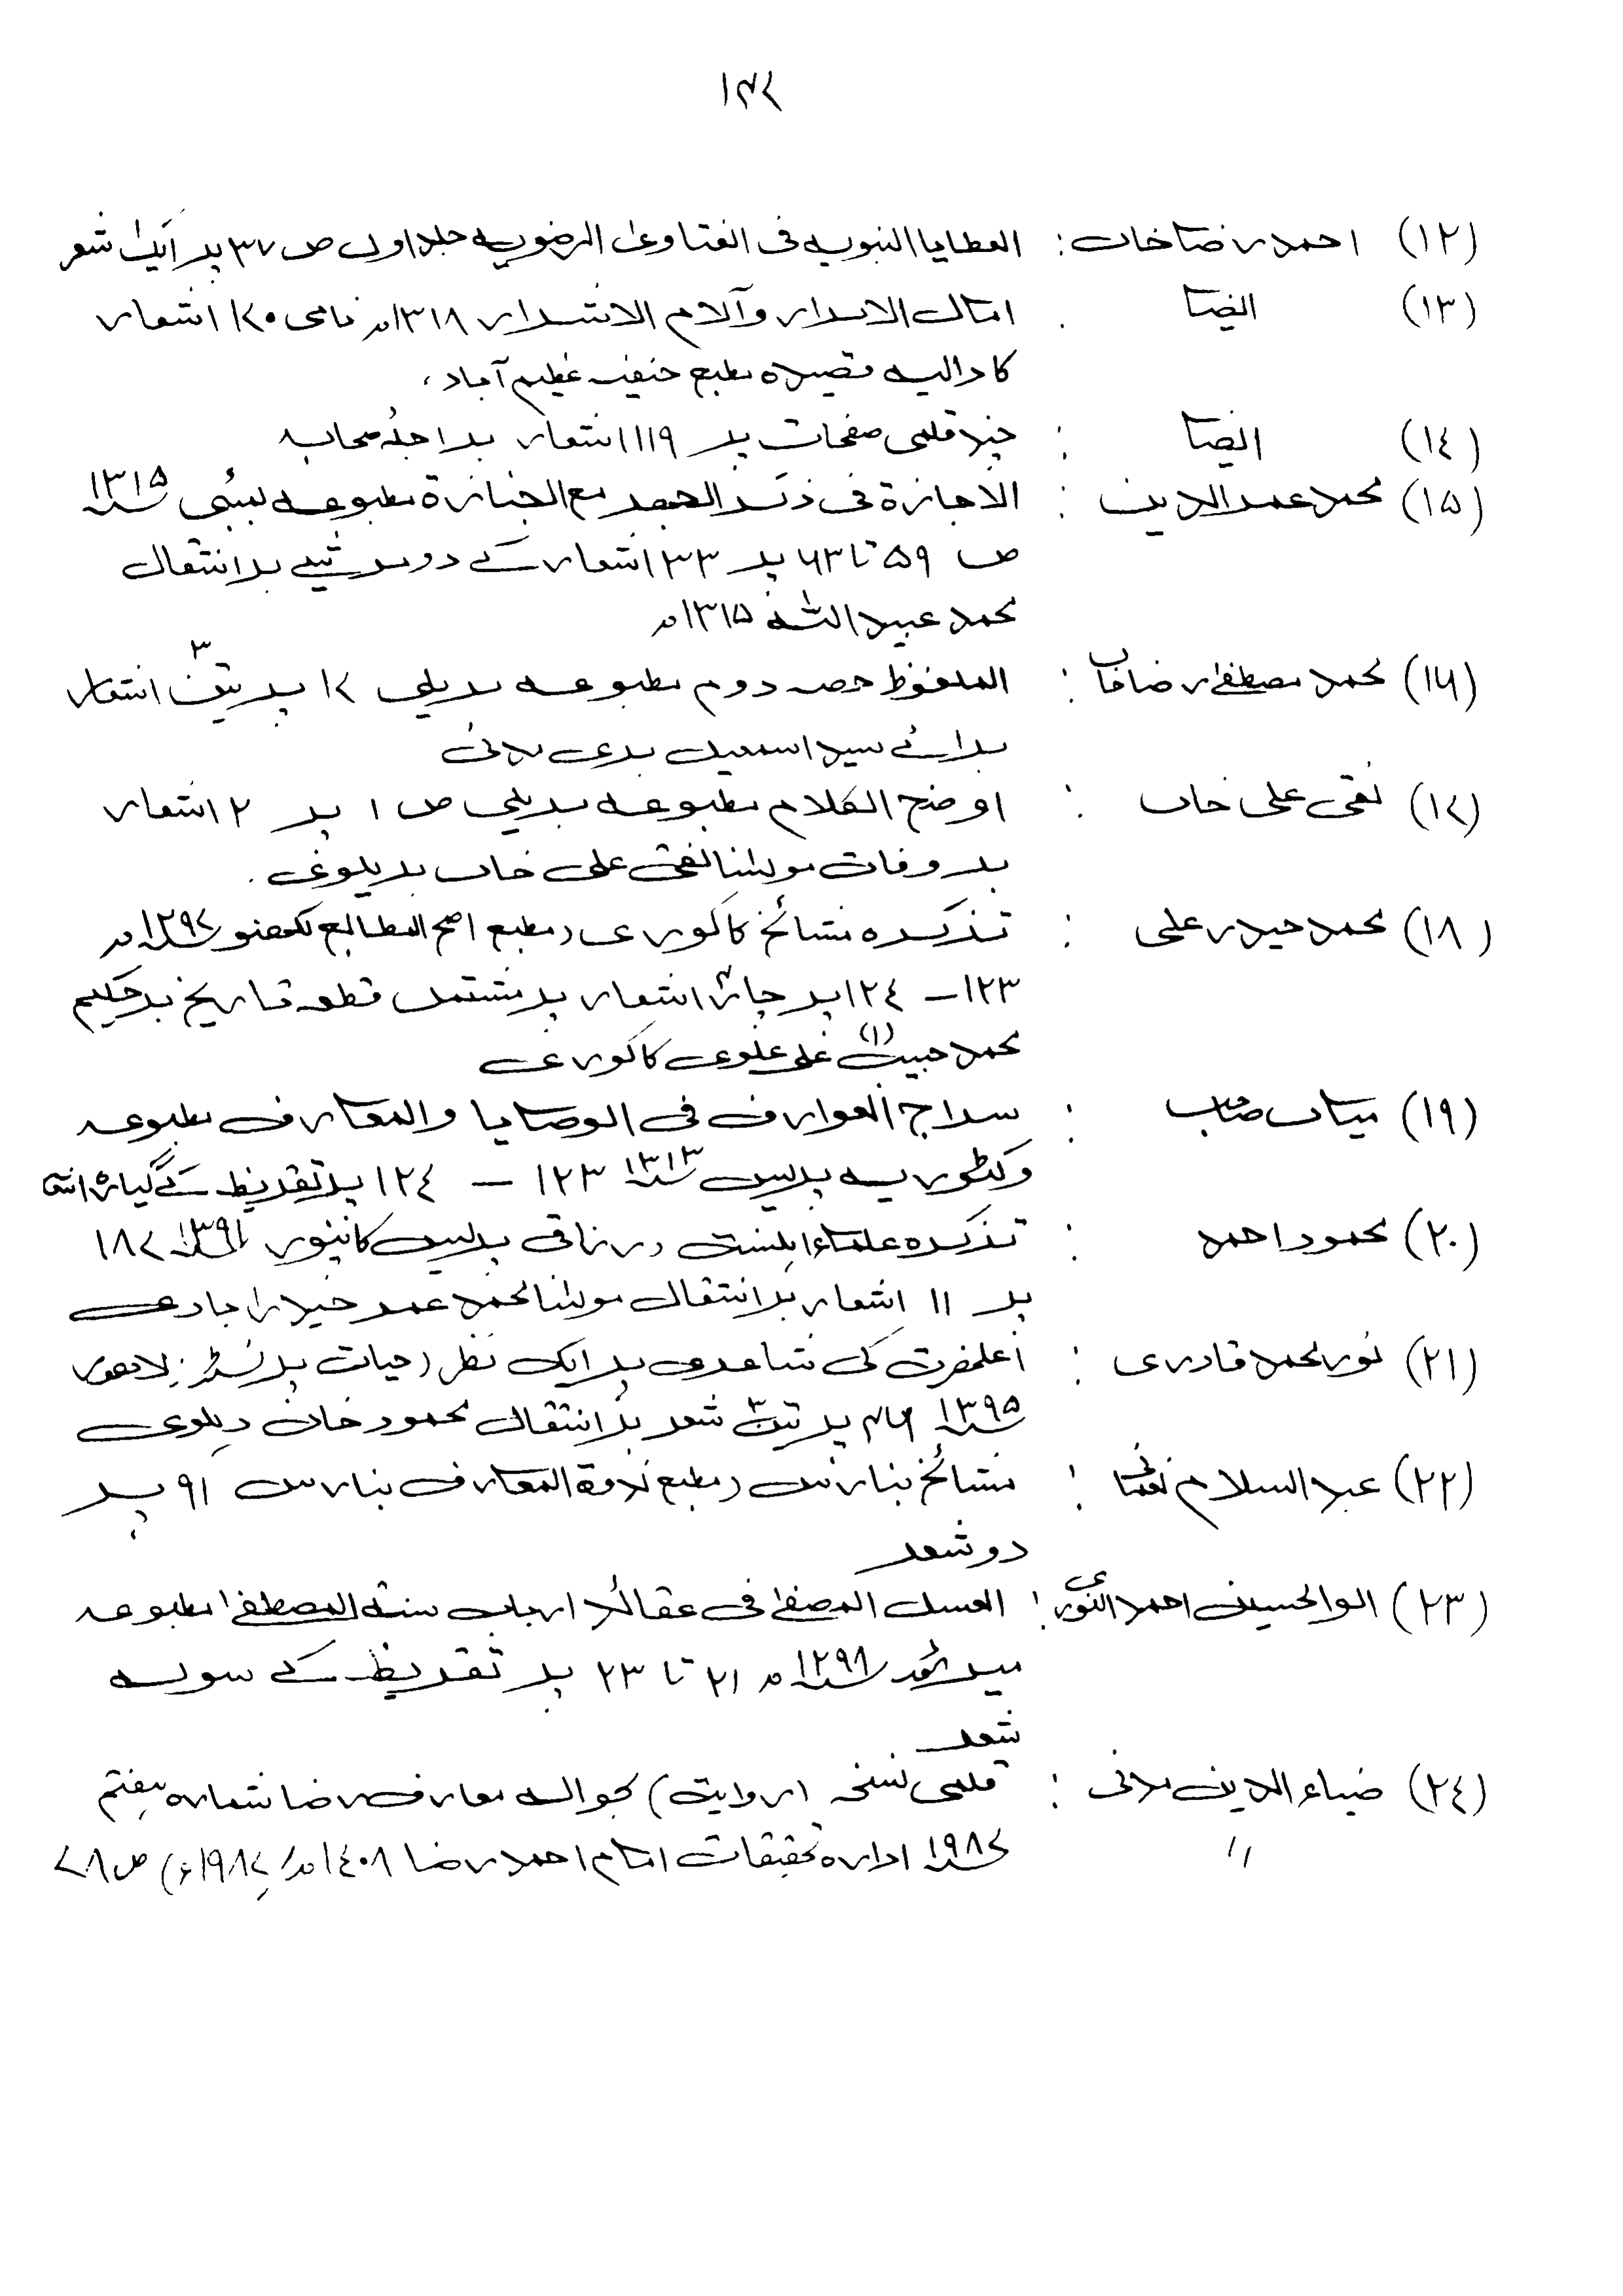 ۱۴۷
(۱۲) احمد رضا خاں : العطایا النبویہ فی الفتاویٰ الرضویہ جلد اول ص ۳۷ پر ایک شعر
(۱۳) ایضاً : امال الابرار وآلام الاشرار ۱۳۱۸ھ نامی ۱۷۰ اشعار
کا دالیہ قصیدہ مطبع حنفیہ عظیم آباد،
(۱٤) ایضاً : چند قلمی صفحات پر ۱۱۱۹ اشعار بر اجلہ صحابہ
(۱۵) محمد عمر الدین : الاجازة فی ذکر الجہر مع الجنازة مطبوعہ بمبئی ۱۳۱۵
ص ۵۹ تا ۶۳ پر ۳۳ اشعار کے دو مرثیے بر انتقال
محمد عبید اللہ ۱۳۱۵ھ
(۱۶) محمد مصطفیٰ رضا خاں : الملفوظ حصہ دوم مطبوعہ بریلی ۱۷ پر تین۳ اشعار
برائے سید اسمعیل بری مدنی
(۱۷) نقی علی خاں : اوضح الکلام مطبوعہ بریلی ص ۱ پر ۲ اشعار
بر وفات مولٰنا نقی علی خاں بریلوی.
(۱۸) محمد حیدر علی : تذکرہ مشائخ کاکوری (مطبع اصح المطابع لکھنو ۱۲۹۷ھ
۱۲۳ــ۱۲٤ پر چار۴ اشعار پر مشتمل قطعہ تاریخ بر حکیم
محمد حبیب(۱) علی علوی کاکوری
(۱۹) میاں صاحب : سراج العوارف فی الوصایا والمعارف مطبوعہ
وکٹوریہ پریس ۱۳۱۳ ۱۲۳ ــ ۱۲٤ پر تقریظ کے گیارہ
(۲۰) محمود احمد : تذکرہ علماء اہلسنت (رزاقی پریس کانپور ۱۳۹۱ ۱۸۷
پر ۱۱ اشعار بر انتقال مولٰنا محمد عمر حیدرابادی
(۲۱) نور محمد قادری : اعلحضرت کی شاعری پر ایک نظر (حیات پرنٹرز لاھور
۱۳۹۵ پر تین۳ شعر بر انتقال محمود خان دہلوی
(۲۲) عبد السلام نعمانی : مشائخ بنارس (مطبع ندوة المعارف بنارس ۹۱ پر
دو شعر
(۲۳) ابوالحسین احمد النوری : العسل المصفیٰ فی عقائد ارباب سنة المصطفیٰ مطبوعہ
میرٹھ ۱۲۹۸ھ ۲۱ تا ۲۳ پر تقریظ کے سولہ
شعر
(۲٤) ضیاء الدین مدنی : قلمی نسخہ (روایت) بحوالہ معارف رضا شمارہ ہفتم
〃 ۱۹۸۷ ادارہ تحقیقات امام احمد رضا ۱٤۰۸ھ/ ۱۹۸۷ء) ص ۷۸